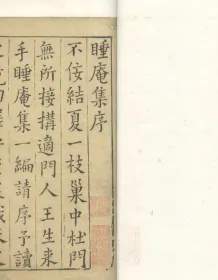 睡庵集序
不佞結夏一枝巢中杜門
無所接搆適門人王生來
手睡庵集一編請序予讀